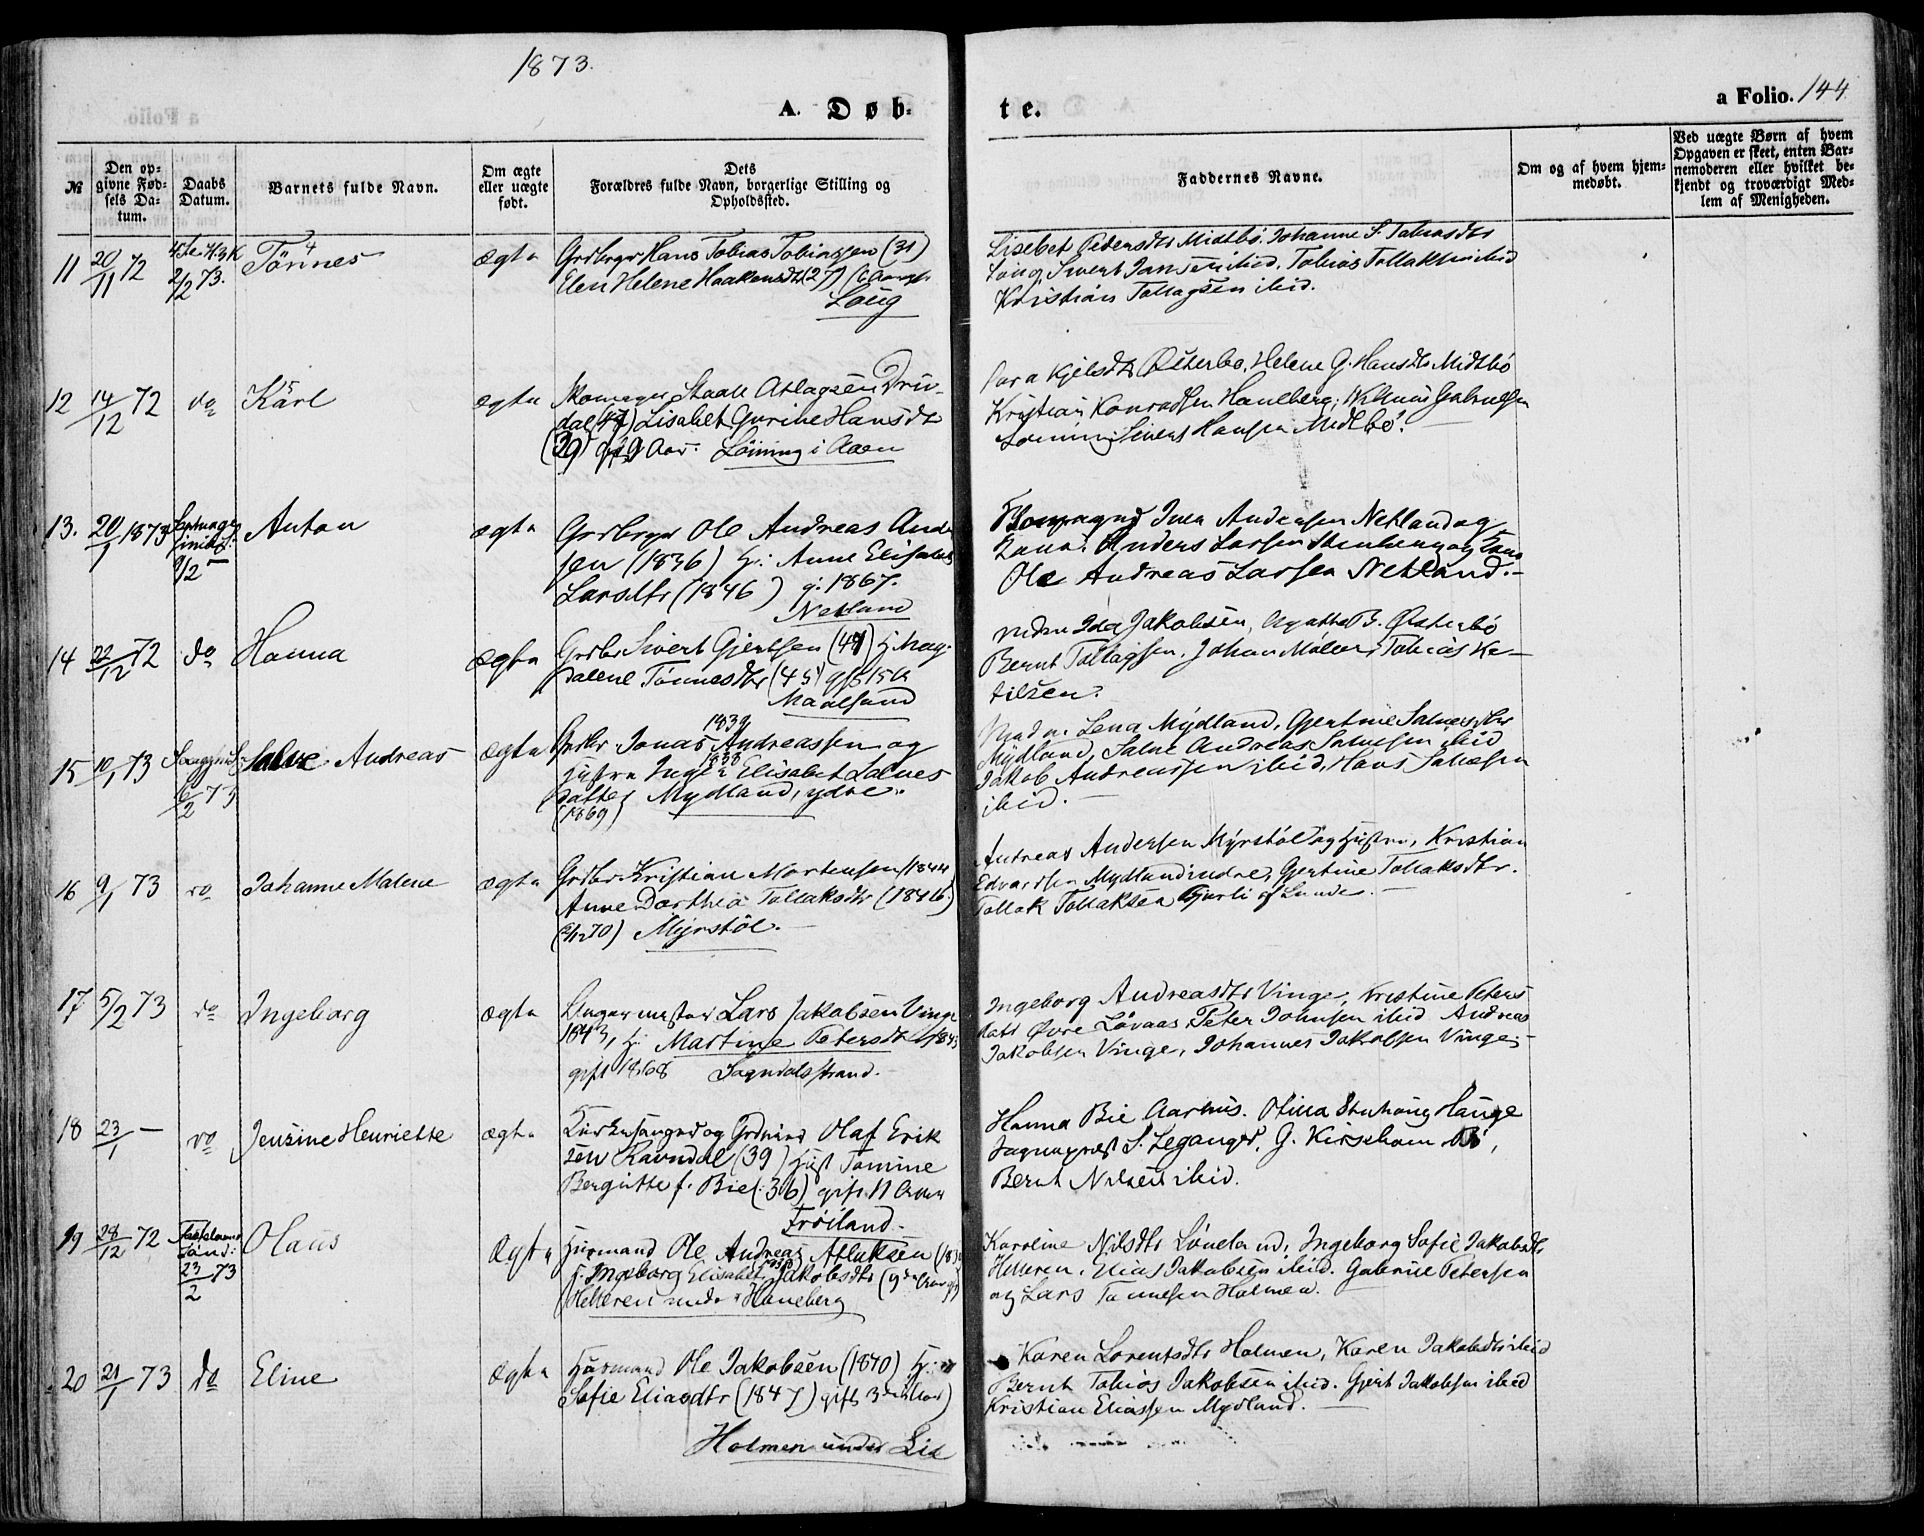 1873.
A. Døb-
te.
a Folio. 144
№
Den op-
givne Fød-
sels Da-
tum.
Daabs
Datum.
Barnets fulde Navn.
Om ægte
eller uægte
født.
Dets
Forældres fulde Navn, borgerlige Stilling og
Opholdssted.
Faddernes Navne.
Om og af hvem hjem-
medøbt.
Ved uægte Børn af hvem
Opgaven er skeet, enten Bar-
nemoderen eller hvilket be-
kjendt og troværdigt Med-
lem af Menigheden.
11 20/11 72 2/2 73. Tönnes ægte Hans Tobias Tobiassen (31)
Elen Helene Haakensdtr (27)
Löug
Lisebet Pedersdtr Midtbö, Johanne S. Tobiasdtr
Löug Sivert Jansen ibid. Tobias Tollaksen ibid
Kristian Tollagsen ibid.
12 14/12 72 do Karl ægte Staale Atlagsen Driv-
dal (47) Lisabet Gurine Hansdtr
(39) gift 9 Aar. Löining i Aaen
Kjelsdtr Østerbö, Helene G. Hansdtr Midtbö
Kristian Konradsen Haneberg,
Löining Sivert Hansen Midtbö.
13. 20/1 1873 9/2 Anton ægte Ole Andreas Ander-
sen (1836) H: Anne Elisabet
Larsdtr (1846) g. 1867.
Netland
Iver Andersen Netland og
Kone. Anders Larsen Stenberg og Kone
Ole Andreas Larsen Netland.
14 22/12 72 do Hanna ægte Grdbr Sivert Gjertsen (47) H. Mag-
dalene Tönnesdtr (45) gift 15 A
Maalsund
Ida Jakobsen, Agathe B. Østerbö
Bernt Tollagsen, Johan Möller, Tobias Ke-
tilsen.
15 10/1 73 16/2 73 Salve Andreas ægte Grdbr Jonas Andreassen og 1839
Hustru Inger Elisabet Salves 1838
datter Mydland, ydre.
(1869)
Lena Mydland, Gjertine Salvesdtr
Mydland, Salve Andreas Salvesen ibid
Jakob Andreassen ibid, Hans Salvesen
ibid.
16 9/1 73 do Johanne Malene ægte Grdbr Kristian Mortensen (1844
Anne Dorthea Tollaksdtr (1846)
Myrstöl.
Andreas Andersen Myrstöl og Hustru, Kristian
Edvardsen Mydland indre, Gjertine Tollaksdtr.
Tollak Tollaksen Gjerli af Lunde.
17 5/2 73 do Ingeborg ægte Lars Jakobsen Vinge
1843, H: Martine Petersdtr 1843
gift 1868 Sogndalsstrand.
Ingeborg Andreasdtr Vinge, Kristine Peters
datt Övre Lövaas Peter Johnsen ibid Andreas
Jakobsen Vinge, Johannes Jakobsen Vinge.
18 23/1 - do Jensine Henriette ægte Kirkesanger og Grdmand Olaf Erik
sen Ravndal (39) Hust Tomine
Bergitte f. Bie (36) gift 11 Aar
Fröiland.
Hanna Bie Aarhus. Otina Hauge
Sogneprest S. Leganger, G. Kirseboom Bö,
Bernt Nilsen ibid.
19 28/12 72 Fastelavns
Sönd:
23/2 73 Olaus Ægte Husmand Ole Andreas Atlaksen
H. Ingeborg Elisabet Jakobsdtr
Helleren under Haneberg
Karoline Nilsdtr Löneland, Ingeborg Sofie Jakobsdtr
Helleren, Elias Jakobsen ibid. Gabriel Petersen
og Lars Tönnesen Holmen.
20 21/1 73 do Eline Ægte Husmand Ole Jakobsen (1840) H:
Sofie Eliasdtr (1847) gift 3die Aar)
Holmen under Lid
Karen Lorentsdtr Holmen, Karen Jakobsdtr ibid
Bernt Tobias Jakobsen ibid. Gjert Jakobsen ibid
Kristian Eliassen Mydland.